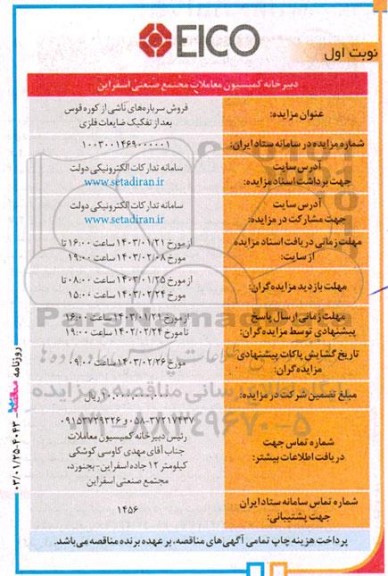 EICO
نوبت اول
دبیرخانه کمیسیون معاملات مجتمع صنعتی اسفراین
عنوان مزایده:
فروش سرباره‌های ناشی از کوره قوس
بعد از تفکیک ضایعات فلزی
شماره مزایده در سامانه ستاد ایران:
۱۰۰۳۰۰۱۴۶۹۰۰۰۰۰۱
آدرس سایت
جهت برداشت اسناد مزایده:
سامانه تدارکات الکترونیکی دولت
www.setadiran.ir
آدرس سایت
جهت مشارکت در مزایده:
سامانه تدارکات الکترونیکی دولت
www.setadiran.ir
مهلت زمانی دریافت اسناد مزایده
از سایت:
از مورخ ۱۴۰۳/۰۱/۲۱ ساعت ۱۶:۰۰ تا
مورخ ۱۴۰۳/۰۲/۰۸ ساعت ۱۹:۰۰
مهلت بازدید مزایده‌گران:
از مورخ ۱۴۰۳/۰۱/۲۵ ساعت ۰۸:۰۰ تا
مورخ ۱۴۰۳/۰۲/۲۴ ساعت ۱۵:۰۰
مهلت زمانی ارسال پاسخ
پیشنهادی توسط مزایده‌گران:
از مورخ ۱۴۰۳/۰۱/۲۱ ساعت ۱۶:۰۰
تا مورخ ۱۴۰۲/۰۲/۲۴ ساعت ۱۹:۰۰
تاریخ گشایش پاکات پیشنهادی
مزایده‌گران:
مورخ ۱۴۰۳/۰۲/۲۶ ساعت ۰۹:۰۰
مبلغ تضمین شرکت در مزایده:
ریال
شماره تماس جهت
دریافت اطلاعات بیشتر:
۰۵۸-۳۷۲۱۷۴۳۷ و ۰۹۱۵۳۷۲۹۳۲۶
رئیس دبیرخانه کمیسیون معاملات
جناب آقای مهدی کاوسی کوشکی
کیلومتر ۱۲ جاده اسفراین- بجنورد،
مجتمع صنعتی اسفراین
شماره تماس سامانه ستاد ایران
جهت پشتیبانی:
۱۴۵۶
پرداخت هزینه چاپ تمامی آگهی‌های مناقصه، بر عهده برنده مناقصه می‌باشد.
روزنامه
۰۳/۰۱/۲۵-۴۰۴۳
۰۲۱-۸۸۳۴۹۶۷۰-۵